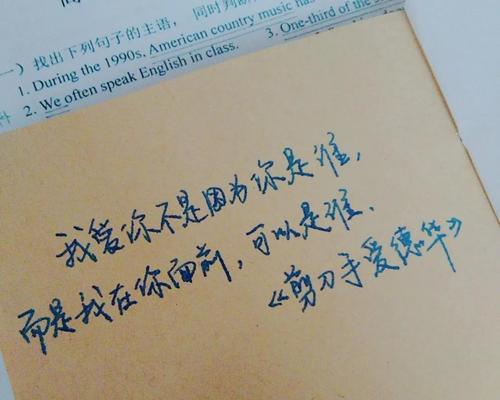 一）找出下列句子的主语，同时判断
1. During the 1990s, American country music has
2. We often speak English in class. 3. One-third of the
我爱你不是因为你是谁，
而是我在你面前，可以是谁.
《剪刀手爱德华》